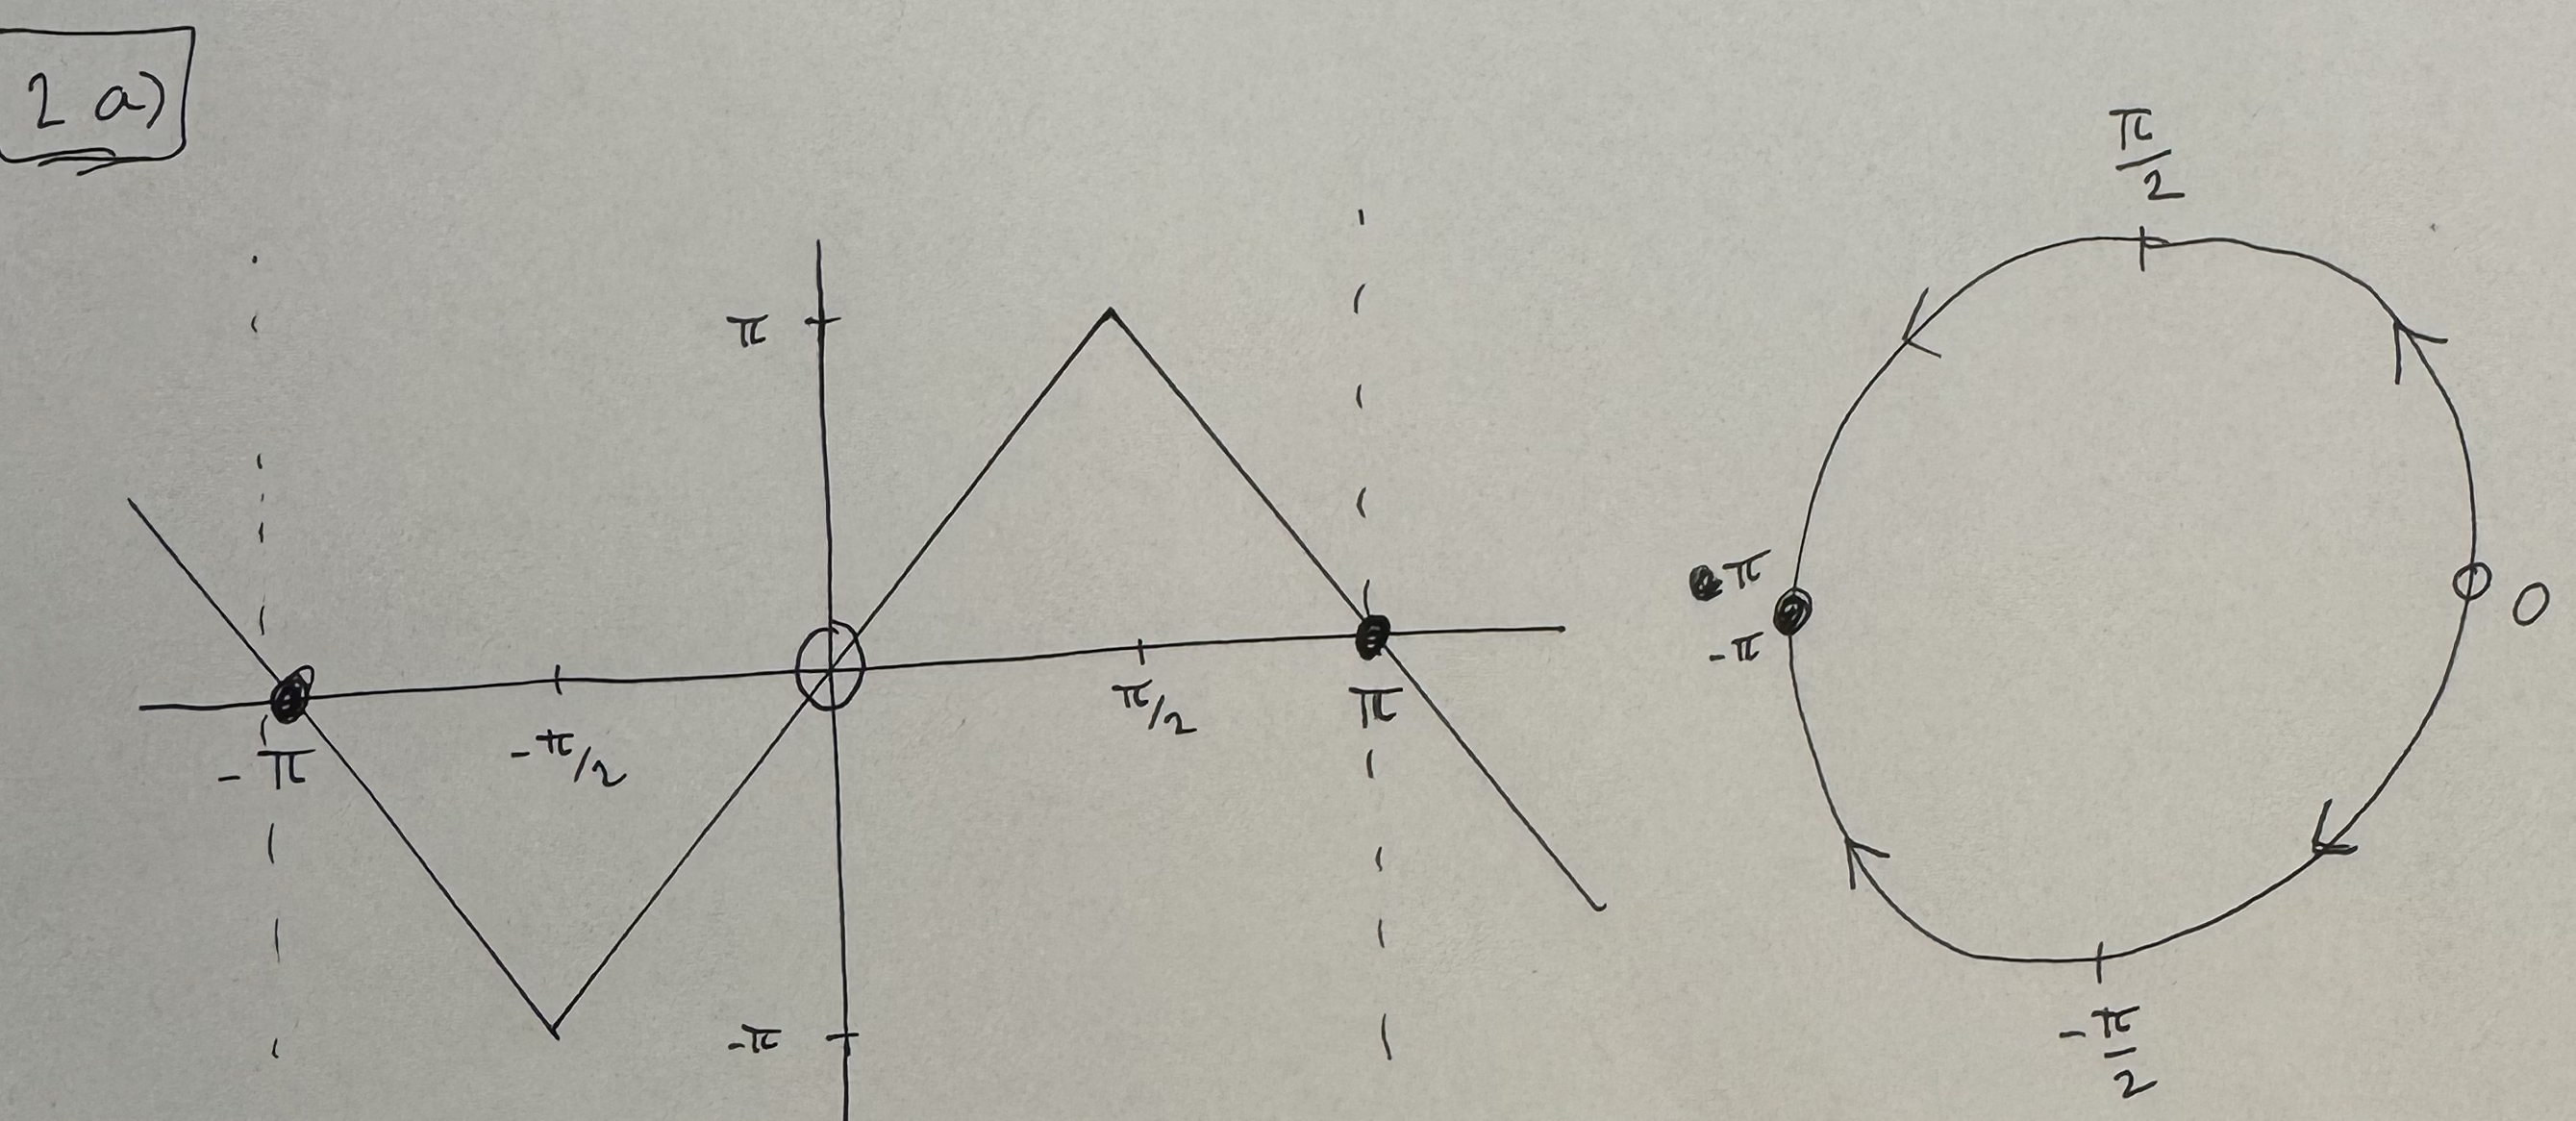 2 a)
π
-π
-π/2
π/2
π
-π
π
2
π
-π
0
-π
2